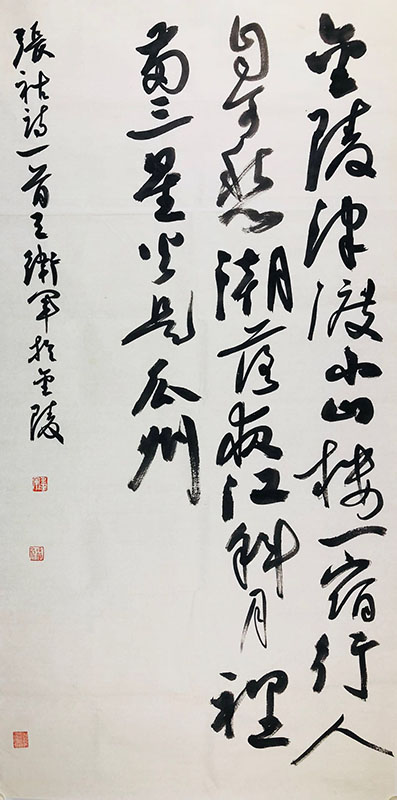 金陵津渡小山樓一宿行人
自可愁潮落夜江斜月裡
兩三星火是瓜州
張祜詩一首王衛軍於金陵